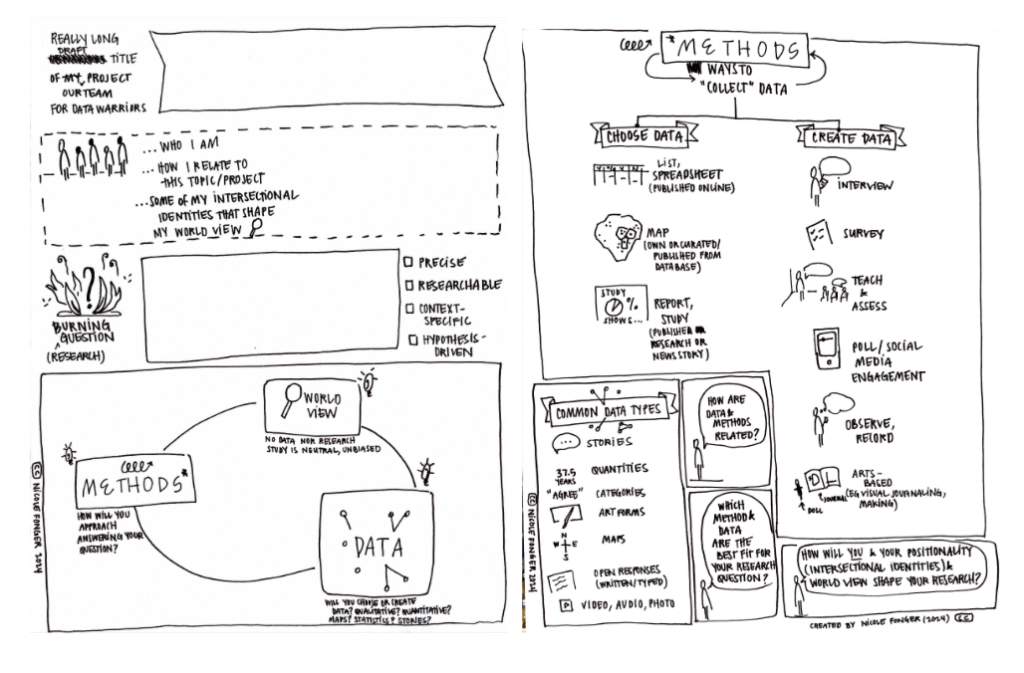 REALLY LONG
DRAFT
TITLE
OF MY PROJECT
OUR TEAM
FOR DATA WARRIORS
... WHO I AM
... HOW I RELATE TO
THIS TOPIC/PROJECT
...SOME OF MY INTERSECTIONAL
IDENTITIES THAT SHAPE
MY WORLD VIEW
?
BURNING
QUESTION
(RESEARCH)
PRECISE
RESEARCHABLE
CONTEXT-
SPECIFIC
HYPOTHESIS-
DRIVEN
WORLD
VIEW
NO DATA NOR RESEARCH
STUDY IS NEUTRAL, UNBIASED
METHODS*
HOW WILL YOU
APPROACH
ANSWERING YOUR
QUESTION?
DATA
WILL YOU CHOOSE OR CREATE
DATA? QUALITATIVE? QUANTITATIVE?
MAPS? STATISTICS? STORIES?
CC NICOLE FONGER 2024
*METHODS
WAYS TO
"COLLECT" DATA
CHOOSE DATA
LIST,
SPREADSHEET
(PUBLISHED ONLINE)
MAP
(OWN OR CURATED/
PUBLISHED FROM
DATABASE)
STUDY
%
SHOWS...
REPORT,
STUDY
(PUBLISHED
RESEARCH OR
NEWS STORY)
CREATE DATA
INTERVIEW
SURVEY
TEACH
&
ASSESS
POLL/SOCIAL
MEDIA
ENGAGEMENT
OBSERVE,
RECORD
DOLL
JOURNAL
ARTS-
BASED
(EG VISUAL JOURNALING,
MAKING)
COMMON DATA TYPES
STORIES
37.5
YEARS
QUANTITIES
"AGREE" CATEGORIES
ART FORMS
N
W E
S
MAPS
OPEN RESPONSES
(WRITTEN/TYPED)
VIDEO, AUDIO, PHOTO
HOW ARE
DATA &
METHODS
RELATED?
WHICH
METHOD &
DATA
ARE THE
BEST FIT FOR
YOUR RESEARCH
QUESTION?
HOW WILL YOU & YOUR POSITIONALITY
(INTERSECTIONAL IDENTITIES) &
WORLD VIEW SHAPE YOUR RESEARCH?
CC NICOLE FONGER 2024
CREATED BY NICOLE FONGER (2024) CC